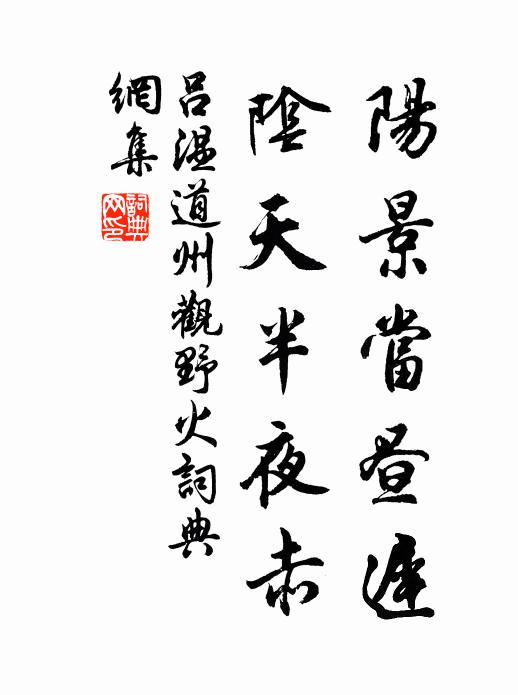 陽景當昼遲
陰天半夜赤
呂温道州觀野火詞典
網集
詞典
网印